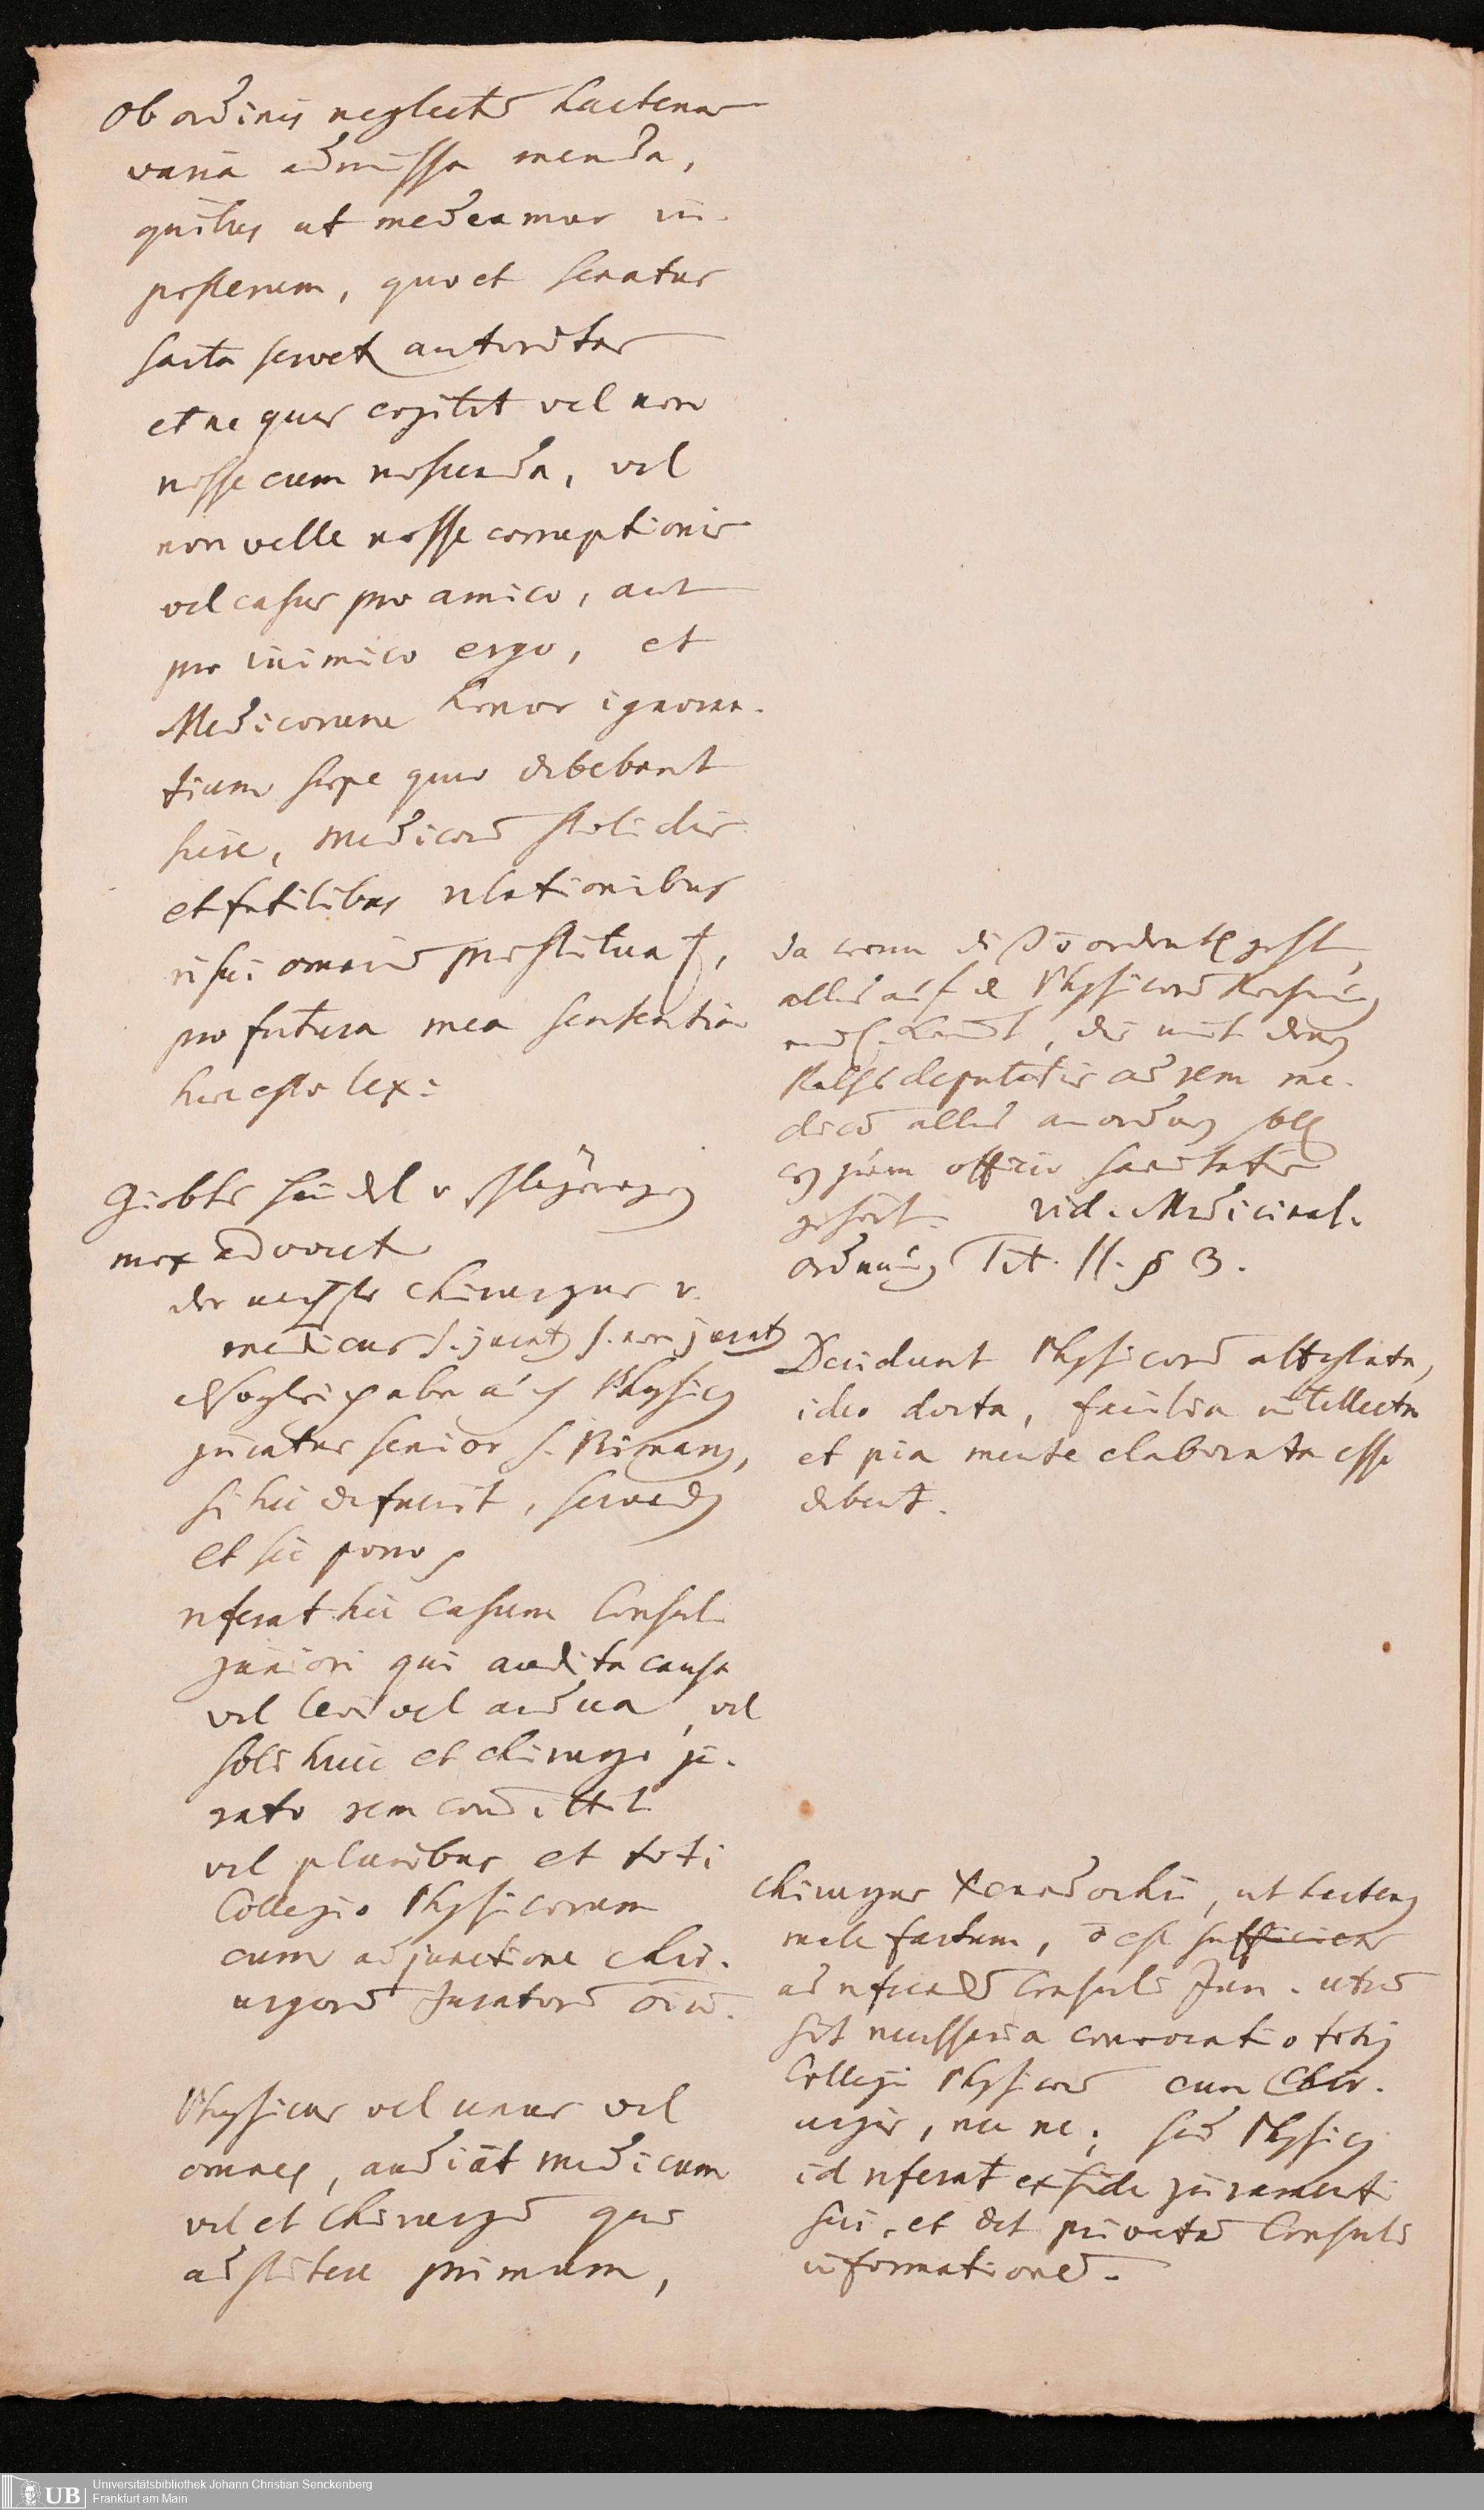 Ob ordinis neglectū hactenus
varia admissa menda,
quibus ut medeamur in
posterum, quo et Senatus
sarta servet autoritas
et ne quis cogitet vel non
nosse eum noscenda, vel
non velle nosse corruptionis
vel casus pro amico, aut
pro inimico ergo, et
Medicorum honor ignoran-
tium saepe quid debebant
scire, medicorū stolidis
et futilibus relationibus
risui omniū prostituat,
pro futura mea sententia
haec esto lex:
Giebts Händel v. Schlägereyen
mox advocet
der nechste Chirurgus v.
medicus s. jurat9 s. non jurat9
desgleichen aber auch Physicus
juratus senior s. Primarius,
si hic defuerit, secundus
et sic porro
referat hic casum Consuli
juniori qui audita causa
vel levi vel ardua, vel
soli huic et chirurgo ju-
rato rem committit
vel pluribus et toti
Collegio Physicorum
cum adjunctione chir-
urgorū Juratorū oīū.
Physicus vel unus vel
omnes, audiāt medicum
vel et Chirurgū qui
adstitere primum,
da wenn
alles auf der Physicorū
die mit denen
Raths deputatis ad rem me-
dicā alles anordnen
zum officio Sanitatis
gehört. vid. Medicinal-
ordnung Tit. II. § 3.
Decidunt Physicorū attestata,
ideo docta, facilia intellectu
et pia mente elaborata esse
debent.
Chirurgus Xenodochii, ut hactenus
male factum, ō est sufficiens
ad referendū Consuli Jun. utrū
sit necessaria convocatio totius
Collegii Physicorū cum Chir-
urgis, nec ne; sed Physicus
id referat ex fide juramenti
sui, et det privatā Consuli
informationē.
Universitätsbibliothek Johann Christian Senckenberg
Frankfurt am Main
UB